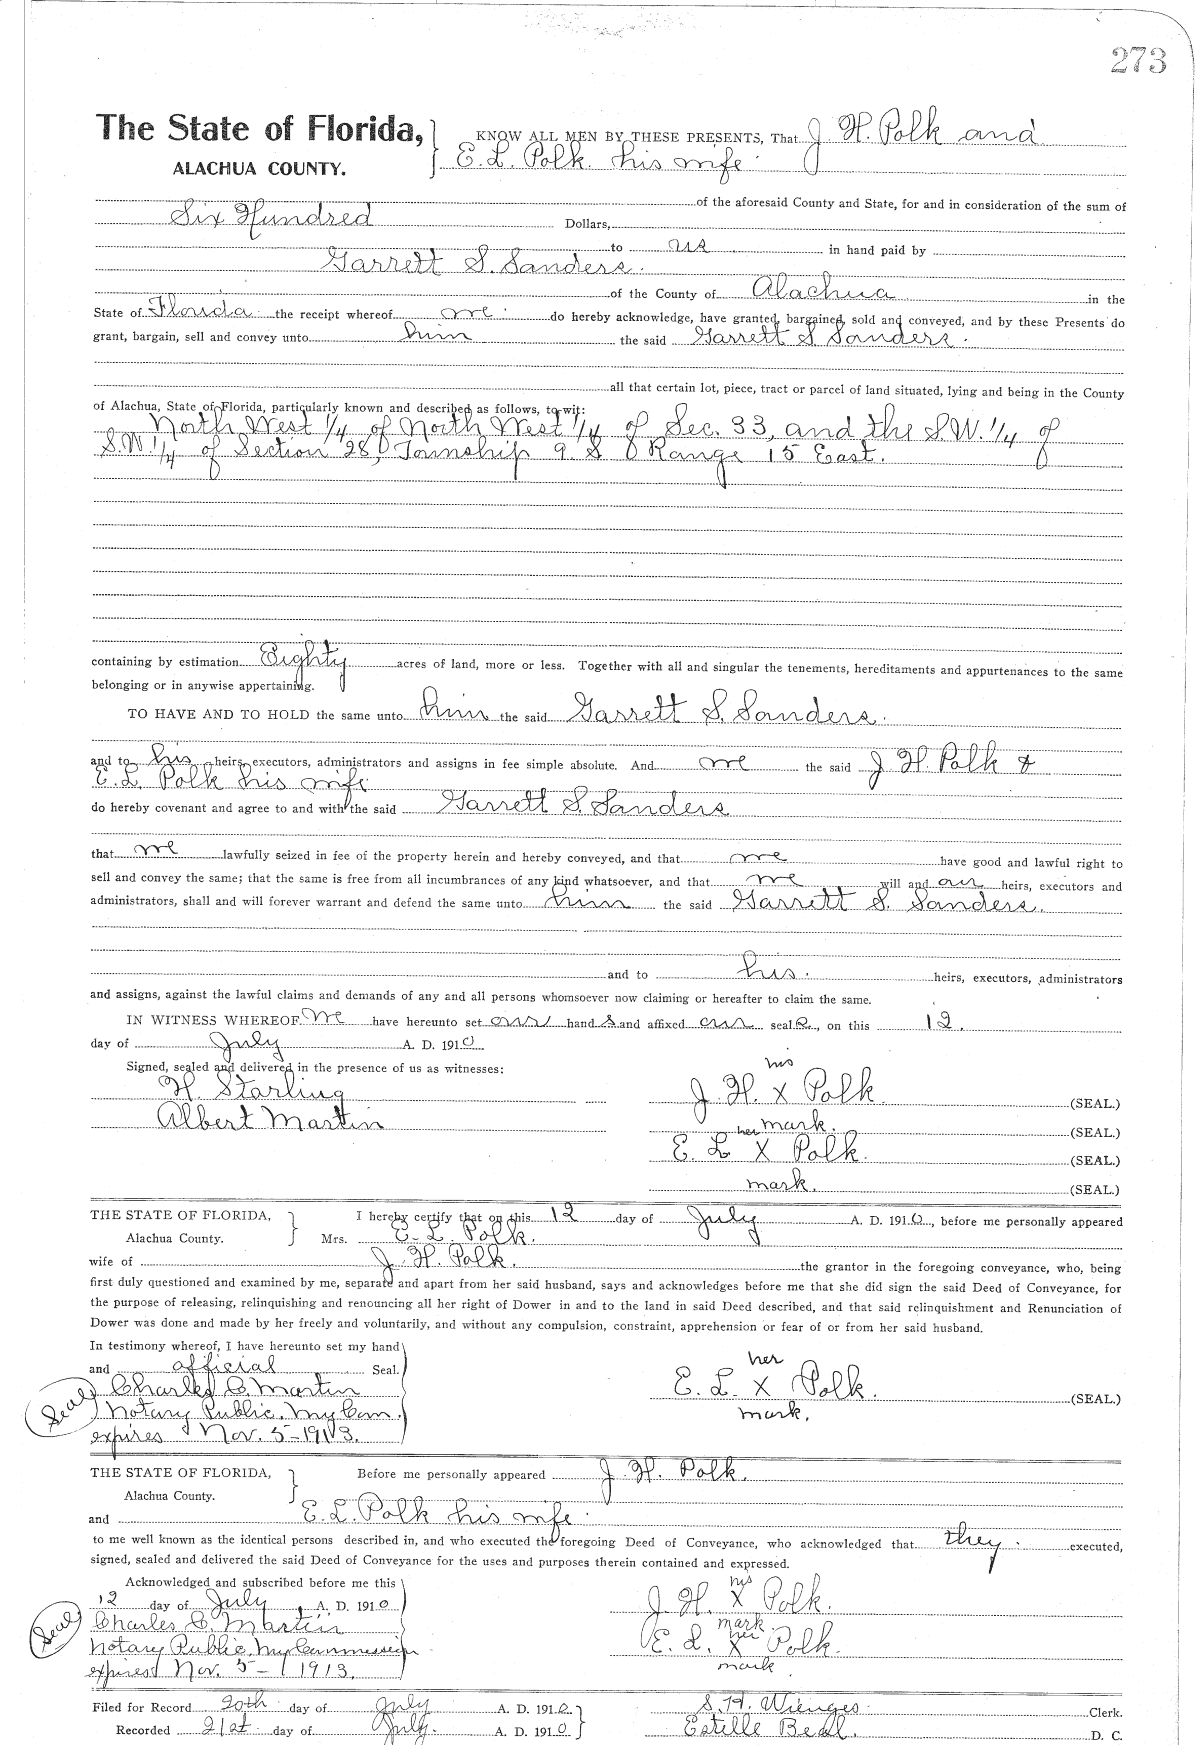 273
The State of Florida, KNOW ALL MEN BY THESE PRESENTS, That J H. Polk and
ALACHUA COUNTY. E. L. Polk his wife
of the aforesaid County and State, for and in consideration of the sum of
Six Hundred Dollars,
to us in hand paid by
Garrett S. Sanders.
of the County of Alachua in the
State of Florida the receipt whereof we do hereby acknowledge, have granted, bargained, sold and conveyed, and by these Presents do
grant, bargain, sell and convey unto him the said Garrett S Sanders.
all that certain lot, piece, tract or parcel of land situated, lying and being in the County
of Alachua, State of Florida, particularly known and described as follows, to wit:
North West 1/4 of North West 1/4 of Sec. 33, and the S.W. 1/4 of
S.W. 1/4 of Section 28, Township 9 S Range 15 East.
containing by estimation Eighty acres of land, more or less. Together with all and singular the tenements, hereditaments and appurtenances to the same
belonging or in anywise appertaining.
TO HAVE AND TO HOLD the same unto him the said Garrett S. Sanders.
and to his heirs, executors, administrators and assigns in fee simple absolute. And we the said J H Polk &
E. L. Polk his wife
do hereby covenant and agree to and with the said Garrett S. Sanders
that we lawfully seized in fee of the property herein and hereby conveyed, and that we have good and lawful right to
sell and convey the same; that the same is free from all incumbrances of any kind whatsoever, and that we will and our heirs, executors and
administrators, shall and will forever warrant and defend the same unto him the said Garrett S. Sanders.
and to his heirs, executors, administrators
and assigns, against the lawful claims and demands of any and all persons whomsoever now claiming or hereafter to claim the same.
IN WITNESS WHEREOF we have hereunto set our hand s and affixed our seal s, on this 12.
day of July A. D. 1910
Signed, sealed and delivered in the presence of us as witnesses: his
H. Starling J. H. X Polk (SEAL.)
Albert Martin mark. (SEAL.)
her
E. L X Polk. (SEAL.)
mark. (SEAL.)
THE STATE OF FLORIDA, I hereby certify that on this 12 day of July A. D. 1910, before me personally appeared
Alachua County. Mrs. E. L. Polk.
wife of J. H. Polk. the grantor in the foregoing conveyance, who, being
first duly questioned and examined by me, separate and apart from her said husband, says and acknowledges before me that she did sign the said Deed of Conveyance, for
the purpose of releasing, relinquishing and renouncing all her right of Dower in and to the land in said Deed described, and that said relinquishment and Renunciation of
Dower was done and made by her freely and voluntarily, and without any compulsion, constraint, apprehension or fear of or from her said husband.
In testimony whereof, I have hereunto set my hand
and official Seal. her
Seal Charles C. Martin E. L. X Polk. (SEAL.)
Notary Public. My Com. mark.
expires Nov. 5-1913.
THE STATE OF FLORIDA, Before me personally appeared J. H. Polk.
Alachua County.
and E. L. Polk his wife
to me well known as the identical persons described in, and who executed the foregoing Deed of Conveyance, who acknowledged that they executed,
signed, sealed and delivered the said Deed of Conveyance for the uses and purposes therein contained and expressed.
Acknowledged and subscribed before me this his
12 day of July, A. D. 1910 J H. X Polk.
Seal Charles C. Martin mark. her
Notary Public. My Commission E. L. X Polk.
expires Nov. 5-1913. mark
Filed for Record 20th day of July A. D. 1910 S. H. Wienges Clerk.
Recorded 21st day of July. A. D. 1910 Estelle Beal. D. C.